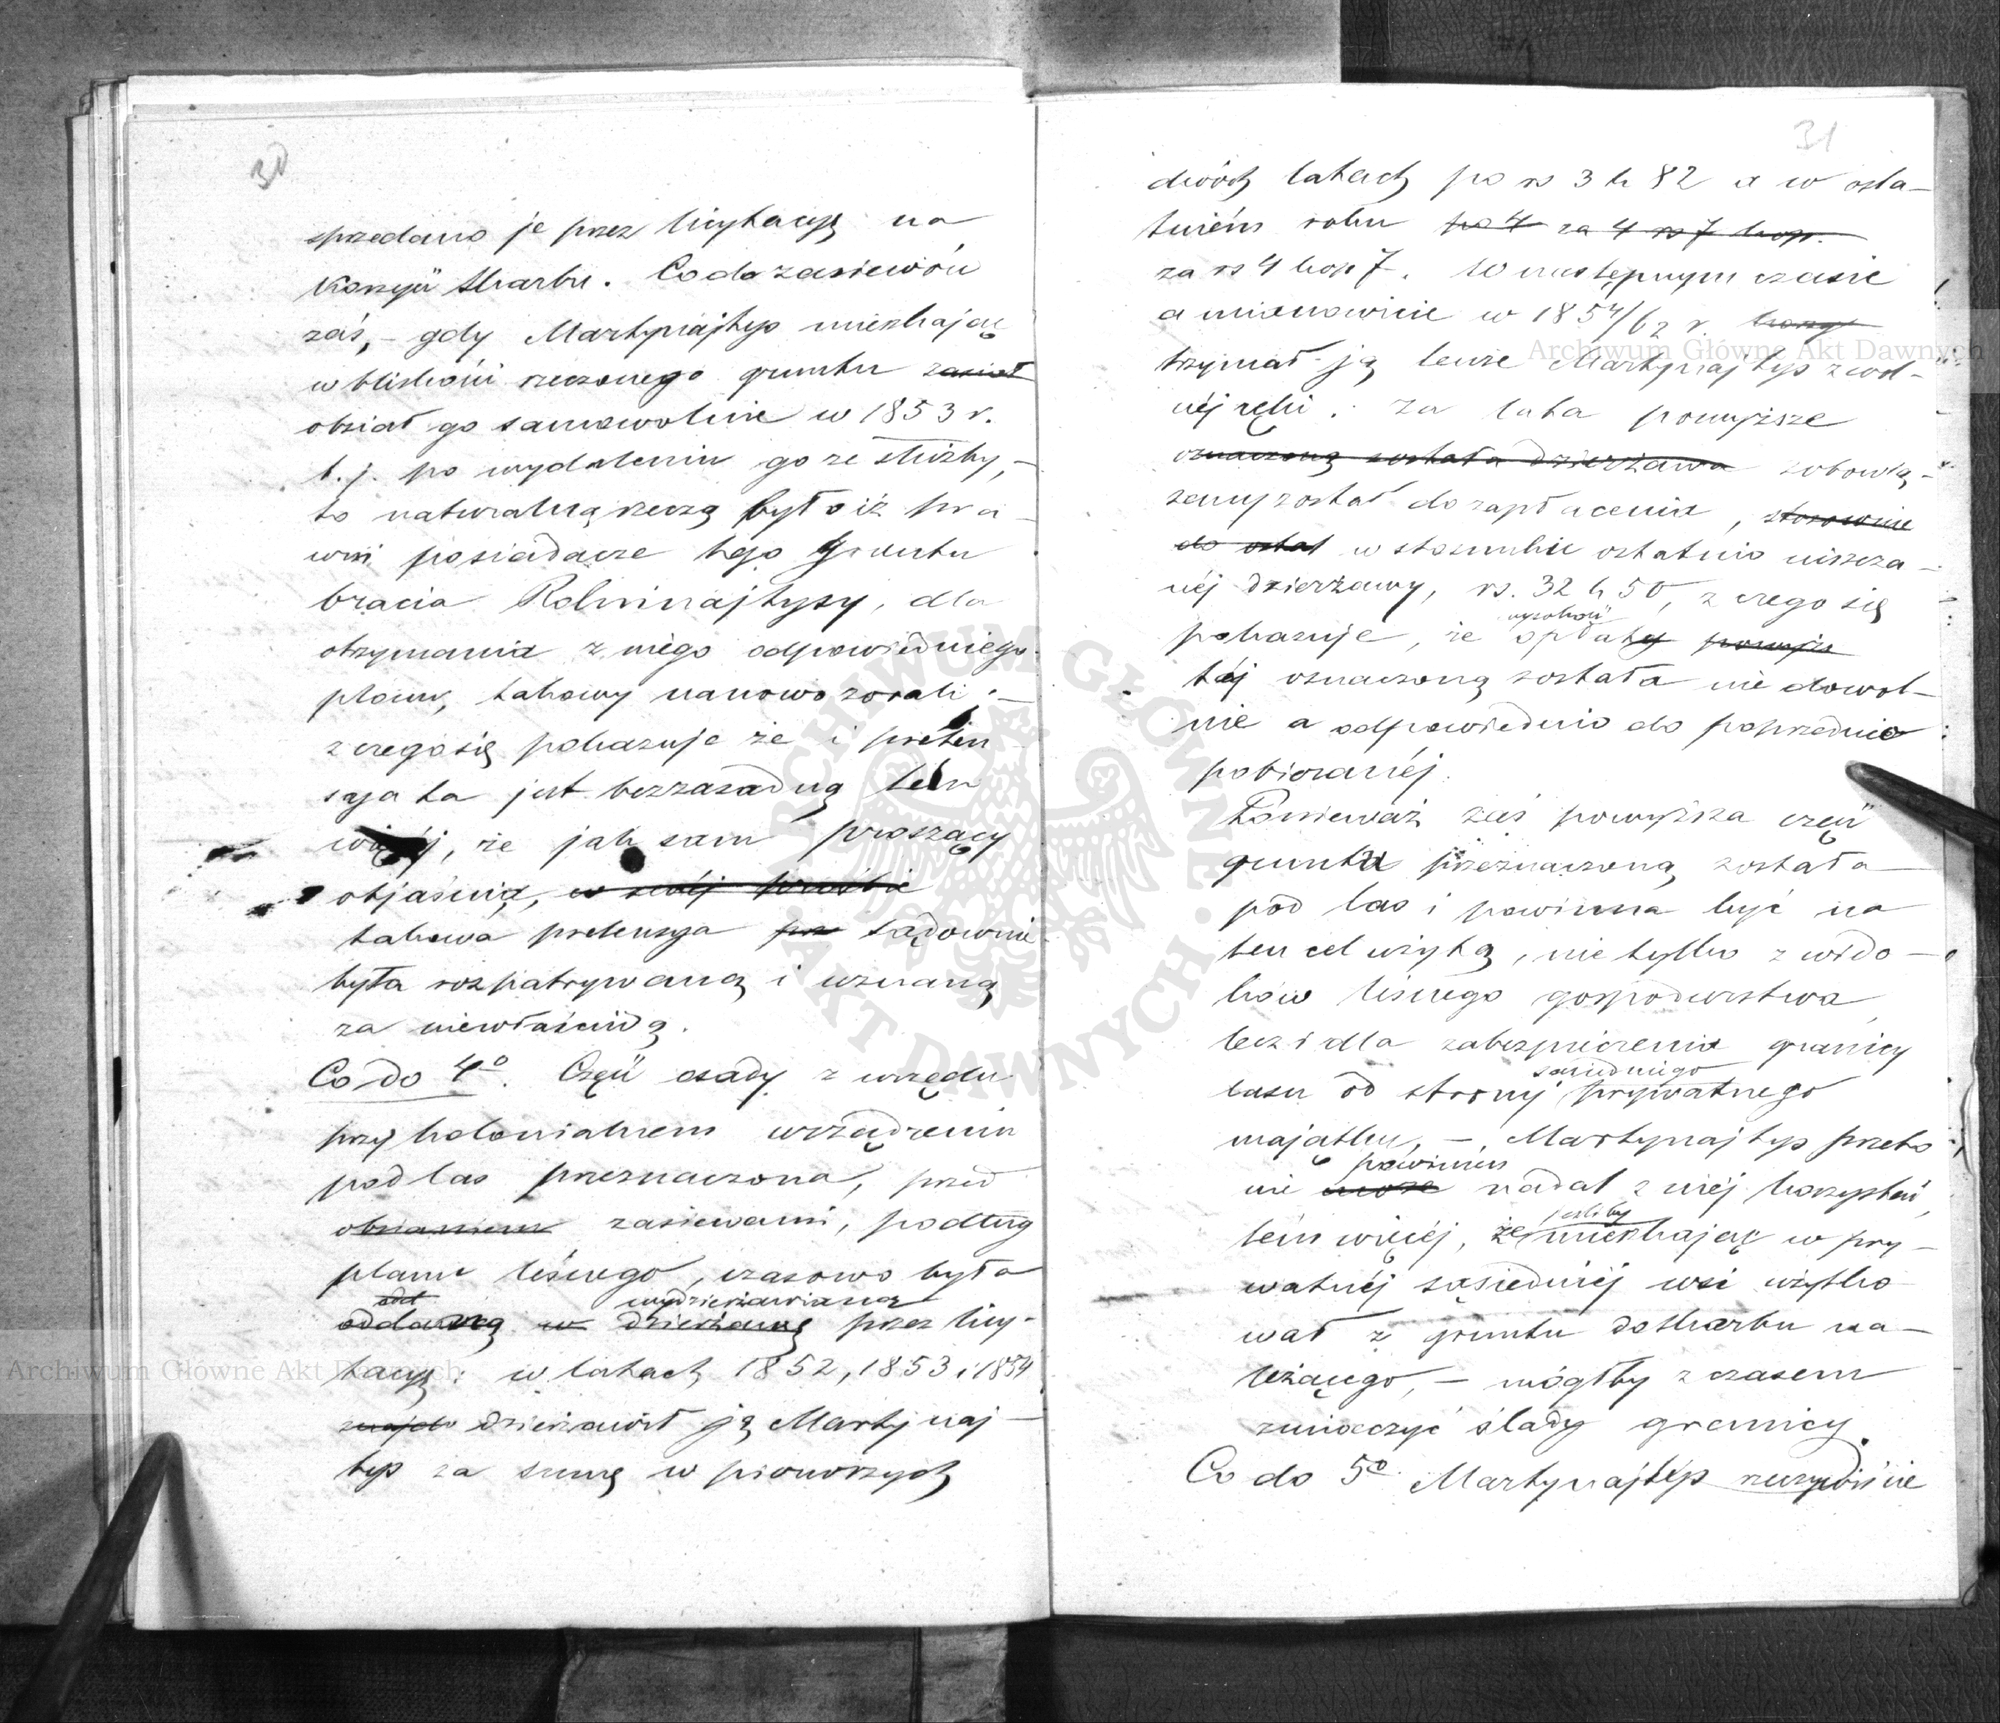 30
sprzedano je przez licytacyę na
korzyść skarbu. Co do zasiewów
zaś, – gdy Martynajtys mieszkając
w bliskości rzeczonego gruntu zasiał
obsiał go samowolnie w 1853 r.
t. j. po wydaleniu go ze służby, –
to naturalną rzeczą było iż pra-
wni posiadacze tego gruntu
bracia Rolninajtysy, dla
otrzymania z niego odpowiedniego
plonu, takowy nanowo zorali; –
z czego się pokazuje że i preten
sya ta jest bezzasadną tém
więcéj, że jak sam proszący
objaśnia, w swéj prośbie
takowa pretensya prz sądownie
była rozpatrywaną i uznaną
za niewłaściwą.
Co do 4o. Część osady z urzędu
przy kolonialnem urządzeniu
pod las przeznaczona, przed
obsianiem zasiewami, podług
planu leśnego, czasowo była
odd wydzierżawianą
oddawną w dzierżawę przez licy-
tacyę: w latach 1852, 1853 i 1854
znajdo dzierżawił ją Martynaj-
tys za sumę w pierwszych
31
dwóch latach po rs 3 k 82 a w osta-
tniém roku po 4 za 4 rs 7 kop.
za rs 4 kop 7. W następnym czasie
a mianowicie w 1854/62 r.
trzymał ją tenże Martynajtys z wol-
néj ręki. Za lata powyższe
oznaczoną została dzierżawa zobowią-
zany został do zapłacenia, stosownie
do ostat w stosunku ostatnio uiszcza-
néj dzierżawy, rs. 32 k 50, z czego się
wysokość
pokazuje, że opłaty powyżs
téj oznaczoną została nie dowol-
nie a odpowiednio do poprzednio
pobieranéj.
Ponieważ zaś powyższa część
gruntu przeznaczoną została
pod las i powinna być na
ten cel użytą, nie tylko z wido-
ków leśnego gospodarstwa
lecz i dla zabezpieczenia granicy
sąsiedniego
lasu od strony prywatnego
majątku, –, Martynajtys przeto
powinien
nie może nadal z niéj korzystać,
jeśliby
tém więcéj, że mieszkając w pry-
watnéj sąsiedniéj wsi użytko
wał z gruntu do skarbu na-
leżącego, – mógłby z czasem
zniszczyć ślady granicy.
Co do 5o Martynajtys rzeczywiście
Archiwum Główne Akt Dawnych
Archiwum Główne Akt Dawnych
ARCHIWUM GŁÓWNE AKT DAWNYCH